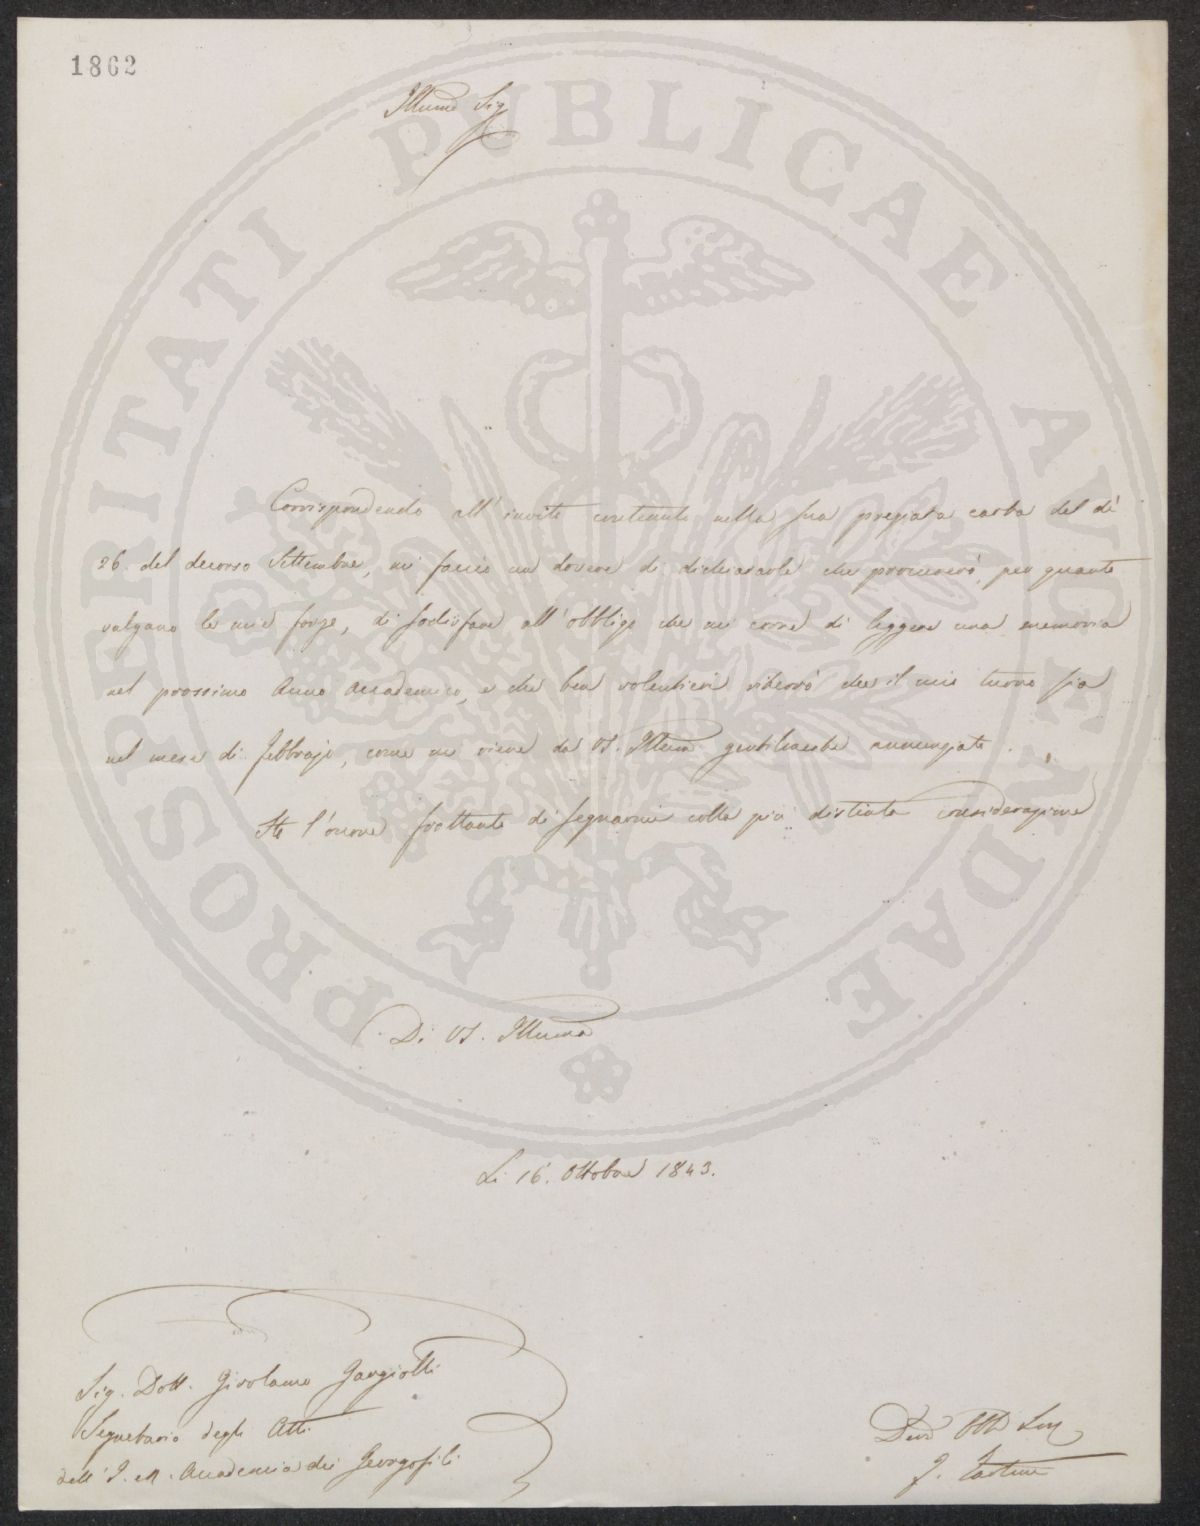 1862
Illmo Sig
Corrispondendo all'invito contenuto nella sua pregiata carta del dì
26. del decorso Settembre, mi faccio un dovere di dichiararle che procurerò, per quanto
valgano le mie forze, di sodisfare all'obbligo che mi corre di leggere una memoria
nel prossimo Anno Accademico, e che ben volentieri riterrò che il mio turno sia
nel mese di Febbrajo, come mi viene da VS. Illma gentilmente annunziato.
Ho l'onore frattanto di segnarmi colla più distinta considerazione
Di VS. Illma
Li 16. Ottobre 1843.
Sig. Dott. Girolamo Gargiolli
Segretario degli Atti
dell'I. e R. Accademia dei Georgofili
Devo Obb Ser
F. Tartini
PROSPERITATI PUBLICAE AUGENDAE